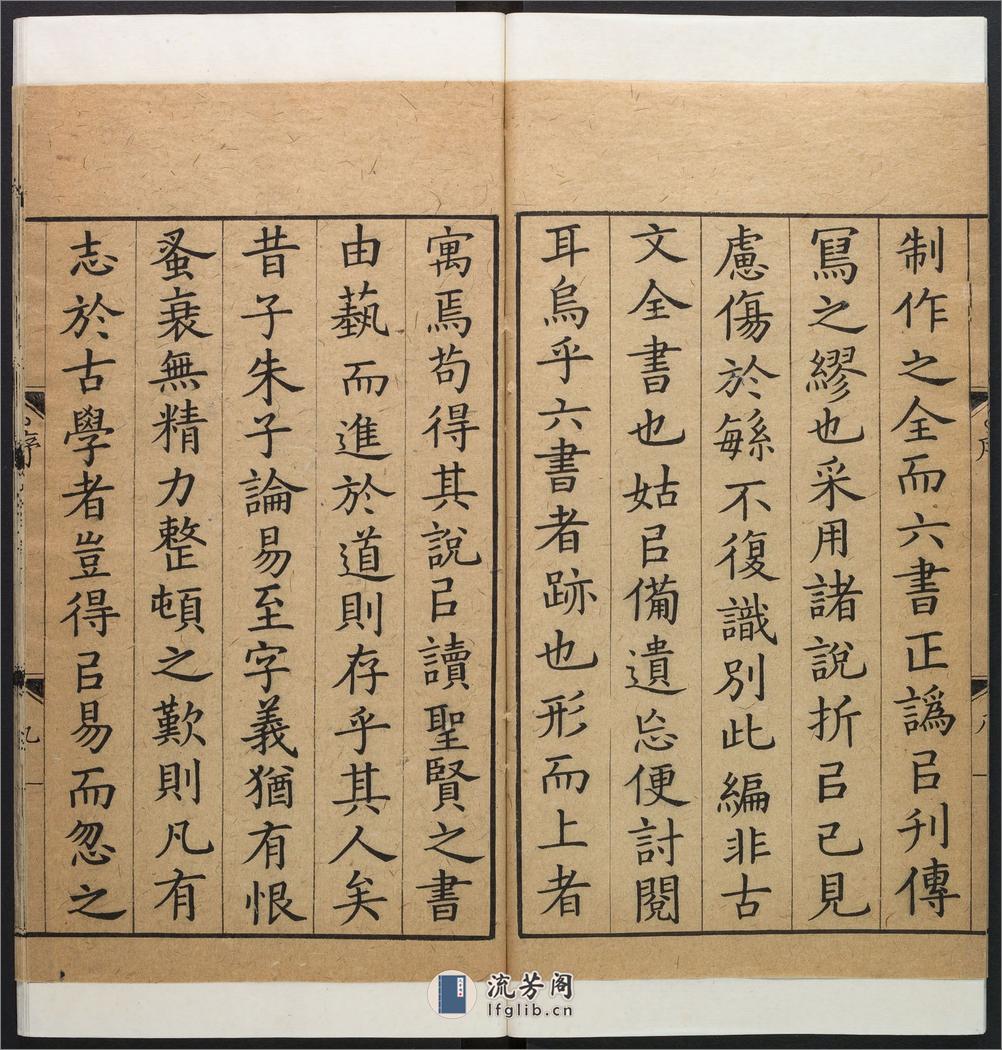 制作之全而六書正譌㠯刋傳
冩之繆也采用諸說折㠯已見
慮傷於緐不復識別此編非古
文全書也姑㠯備遺忘便討閱
耳烏乎六書者跡也形而上者
寓焉苟得其說㠯讀聖賢之書
由蓺而進於道則存乎其人矣
昔子朱子論易至字義猶有恨
蚤衰無精力整頓之歎則凡有
志於古學者豈得㠯易而忽之
序
九
流芳阁
lfglib.cn